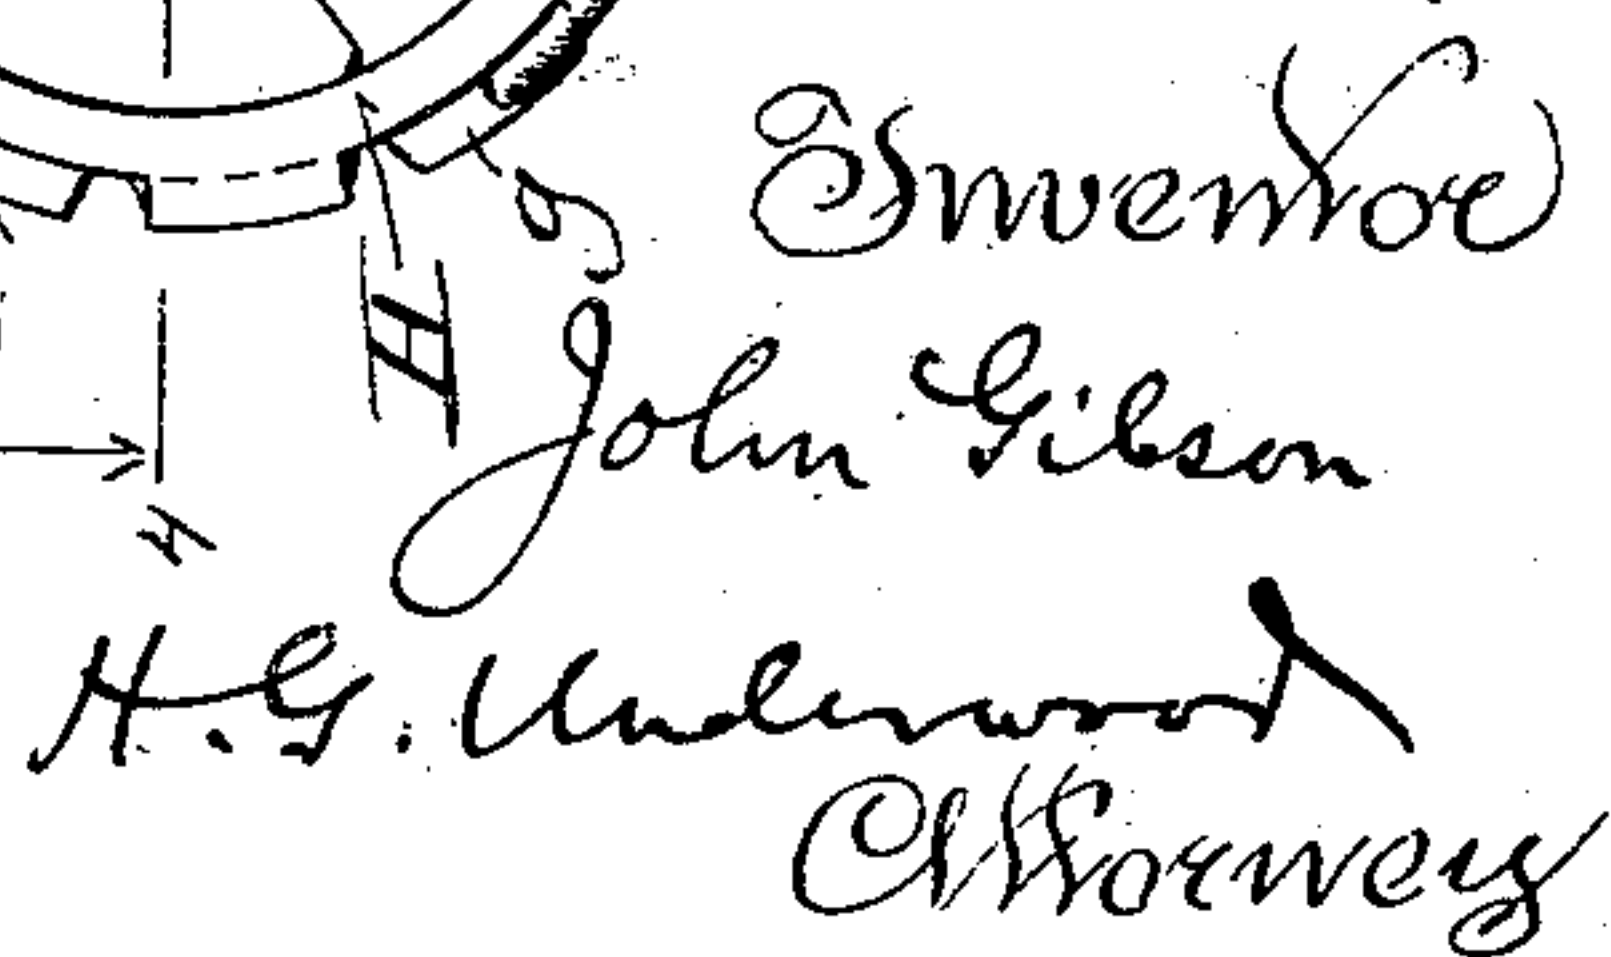 g
Inventor
H
John Gibson
4
H. G. Underwood
Attorney